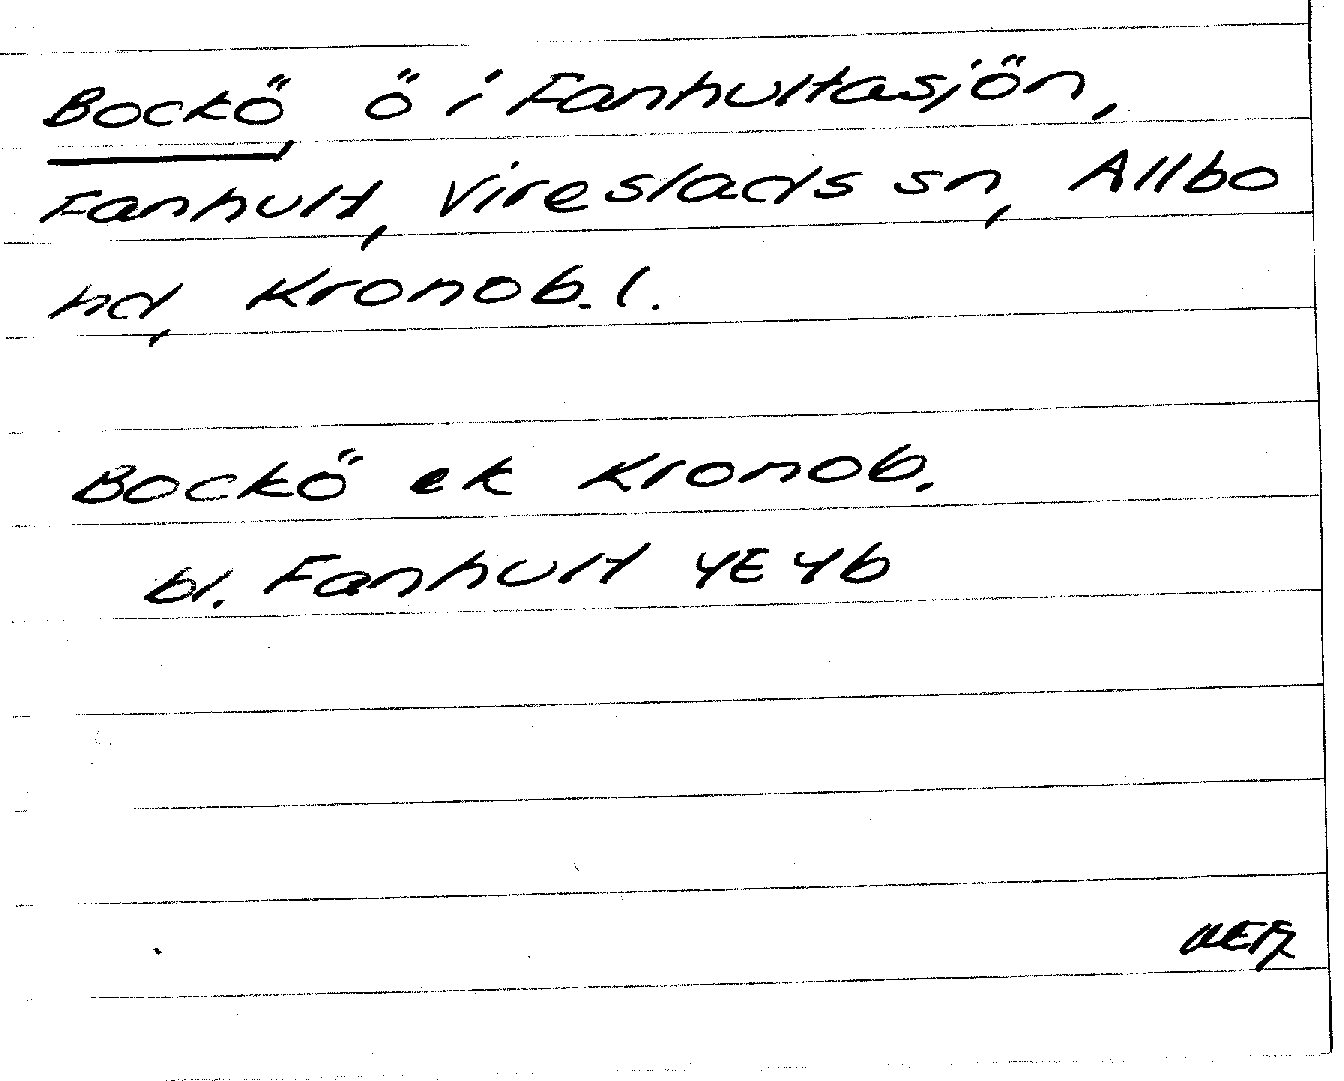 Bockö, ö i Fanhultasjön,
Fanhult, Vireslads sn, Allbo
hd, Kronob. l.
Bockö ek Kronob.
bl. Fanhult 4E4b